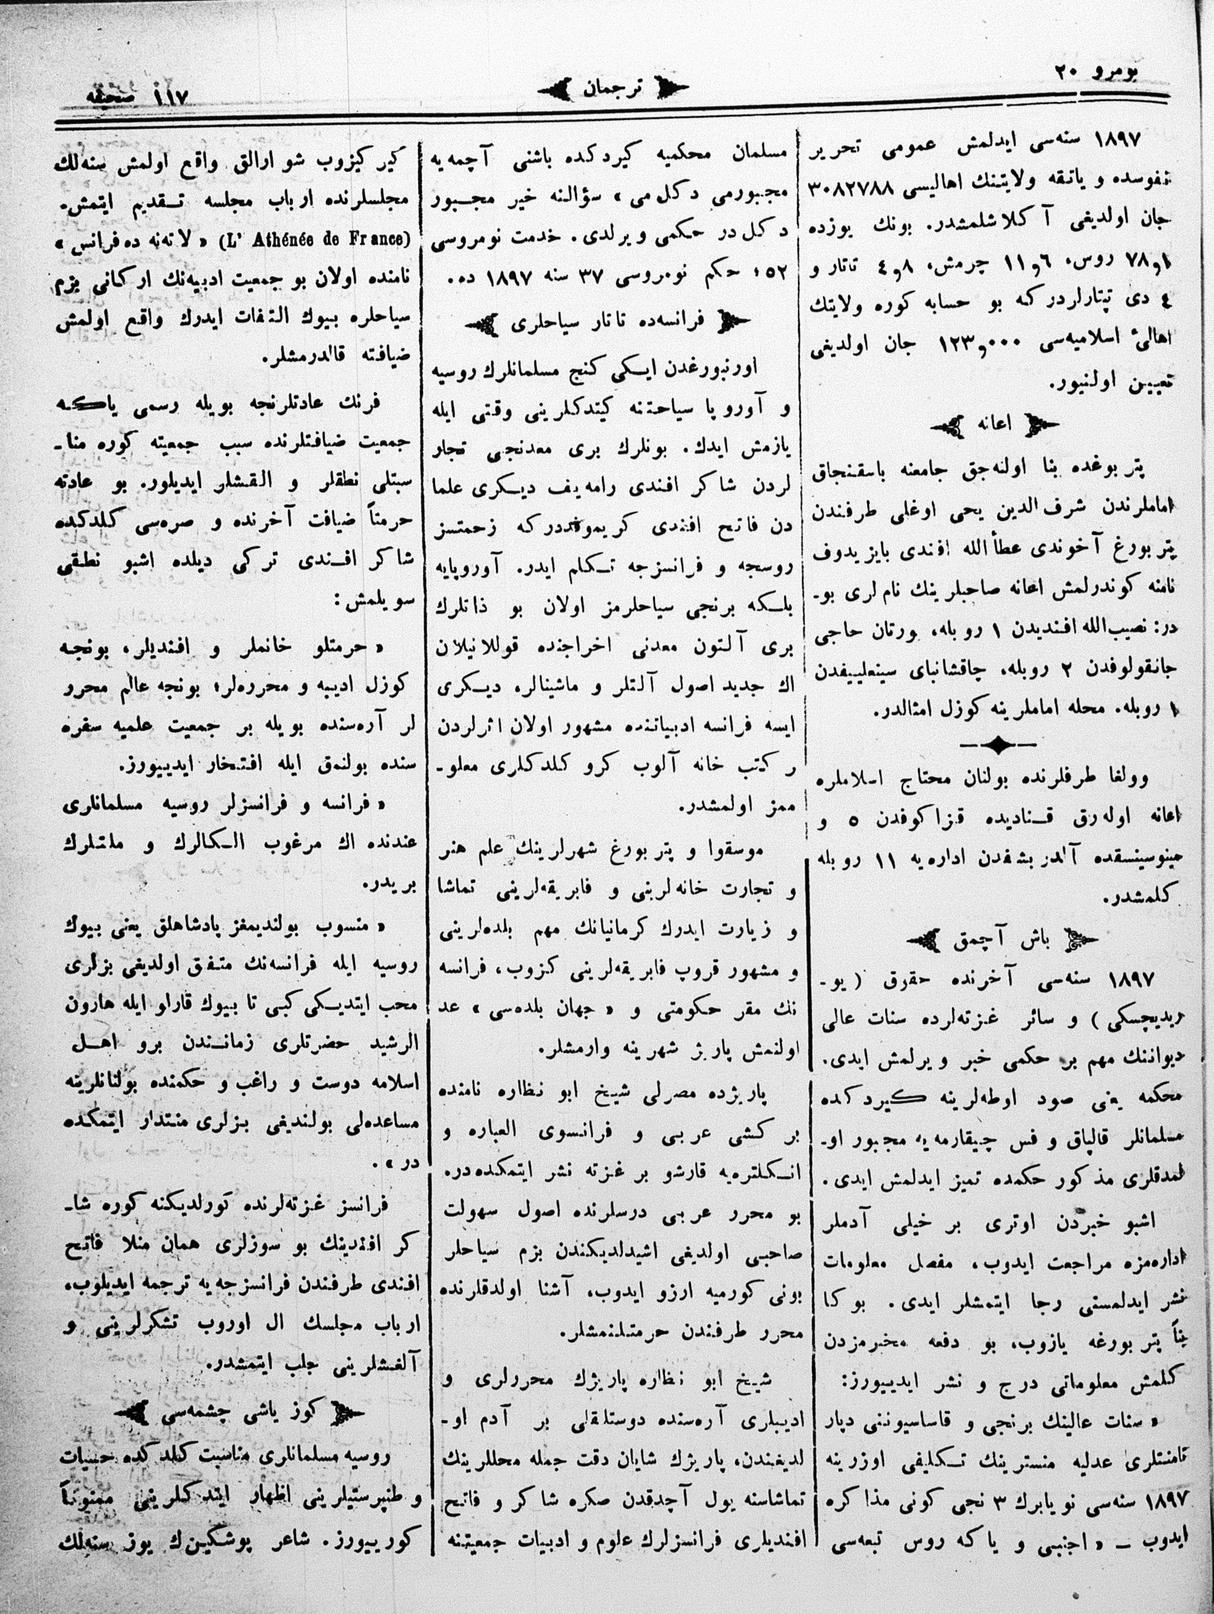 نومرو ٢٠
ترجمان
١١٧ صحيفه
١٨٩٧ سنه‌سی ايدلمش عمومی تحرير
نفوسده و ياتقه ولايتنك اهاليسی ٣٠٨٢٧٨٨
جان اولديغی آكلاشلمشدر. بونك يوزده
٧٨٫١ روس، ١١٫٦ چرمش، ٤٫٨ تاتار و
٤ دی تپتارلردركه بو حسابه كوره ولايتك
اهالیٔ اسلاميه‌سی ١٢٣٫٠٠٠ جان اولديغی
تعيين اولنيور.
اعانه
پتربوغده بنا اولنه‌جق جامعنه باسقنجاق
اماملرندن شرف‌الدين يحی اوغلی طرفندن
پتربورغ آخوندی عطأالله افندی بايزيدوف
نامنه كوندرلمش اعانه صاحبلرينك نام‌لری بو-
در: نصيب‌الله افنديدن ١ روبله، ورتان حاجی
جانقولوفدن ٢ روبله، چاقشانبای سينعلييفدن
١ روبله. محله اماملرينه كوزل امثالدر.
وولغا طرفلرنده بولنان محتاج اسلاملره
اعانه اوله‌رق قناديده قزاكوفدن ٥ و
مينوسينسقده آلدر بشفدن اداره‌يه ١١ روبله
كلمشدر.
باش آچمق
١٨٩٧ سنه‌سی آخرنده حقوق (يو-
ريديچسكی) و سائر غزته‌لرده سنات عالی
ديواننك مهم بر حكمی خبر ويرلمش ايدی.
محكمه يعنی صود اوطه‌لرينه كيردكده
مسلمانلر قالپاق و فس چيقارمه‌يه مجبور او-
لمدقلری مذكور حكمده تميز ايدلمش ايدی.
اشبو خبردن اوتری بر خيلی آدملر
اداره‌مزه مراجعت ايدوب، مفصل معلومات
نشر ايدلمسنی رجا ايتمشلر ايدی. بوكا
بنأ پتربورغه يازوب، بو دفعه مخبرمزدن
كلمش معلوماتی درج و نشر ايدييورز:
« سنات عالينك برنجی و قاساسيوننی دپار
تامنتلری عدليه منسترينك تكليفی اوزرينه
١٨٩٧ سنه‌سی نويابرك ٣ نجی كونی مذاكره
ايدوب — « اجنبی و ياكه روس تبعه‌سی
مسلمان محكميه كيردكده باشنی آچمه‌يه
مجبورمی دكل‌می» سؤالنه خير مجبور
دكل‌در حكمی ويرلدی. خدمت نومروسی
٥٢؛ حكم نومروسی ٣٧ سنه ١٨٩٧ ده.
فرانسه‌ده تاتار سياحلری
اورنبورغدن ايكی كنج مسلمانلرك روسيه
و آوروپا سياحتنه كيتدكلرينی وقتی ايله
يازمش ايدك. بونلرك بری معدنجی تجار
لردن شاكر افندی رامه‌يف ديكری علما
دن فاتح افندی كريموفدركه زحمتسز
روسجه و فرانسزجه تكلم ايدر. آوروپايه
بلكه برنجی سياحلرمز اولان بو ذاتلرك
بری آلتون معدنی اخراجنده قوللانيلان
اك جديد اصول آلتلر و ماشينالر، ديكری
ايسه فرانسه ادبياتنده مشهور اولان اثرلردن
ر كتب خانه آلوب كرو كلدكلری معلو-
ممز اولمشدر.
موسقوا و پتربورغ شهرلرينك علم هنر
و تجارت خانه‌لرينی و فابريقه‌لرينی تماشا
و زيارت ايدرك كرمانيانك مهم بلده‌لرينی
و مشهور قروپ فابريقه‌لرينی كزوب، فرانسه
نك مقر حكومتی و « جهان بلده‌سی » عد
اولنمش پاريژ شهرينه وارمشلر.
پاريژده مصرلی شيخ ابو نظاره نامنده
بر كشی عربی و فرانسوی العباره و
انكلتره‌يه قارشو بر غزته نشر ايتمكده‌در.
بو محرر عربی درسلرنده اصول سهولت
صاحبی اولديغی اشيدلديكندن بزم سياحلر
بونی كورميه ارزو ايدوب، آشنا اولدقلرنده
محرر طرفندن حرمتلنمشلر.
شيخ ابو نظاره پاريژك محررلری و
اديبلری آره‌سنده دوستلقلی بر آدم او-
لديغندن، پاريژك شايان دقت جمله محللرينك
تماشاسنه يول آچدقدن صكره شاكر و فاتح
افنديلری فرانسزلرك علوم و ادبيات جمعيتنه
كيركيزوب شو ارالق واقع اولمش سنه‌لك
مجلسلرنده ارباب مجلسه تقديم ايتمش-
(L' Athénée de France) « لاته‌نه ده فرانس »
نامنده اولان بو جمعيت ادبيه‌نك اركانی بزم
سياحلره بيوك التفات ايدرك واقع اولمش
ضيافته قالدرمشلر.
فرنك عادتلرنجه بويله رسمی ياكه
جمعيت ضيافتلرنده سبب جمعيته كوره منا-
سبتلی نطقلر و القشلر ايديلور. بو عادته
حرمتاً ضيافت آخرنده و صره‌سی كلدكده
شاكر افندی تركی ديلده اشبو نطقی
سويلمش:
« حرمتلو خانملر و افنديلر، بونجه
كوزل اديبه و محرره‌لر؛ بونجه عالم محرر
لر آره‌سنده بويله بر جمعيت علميه سفره
سنده بولنمق ايله افتخار ايدييورز.
« فرانسه و فرانسزلر روسيه مسلمانلری
عندنده اك مرغوب الكالرك و ملتلرك
بريدر.
« منسوب بولنديمغز پادشاهلق يعنی بيوك
روسيه ايله فرانسه‌نك متفق اولديغی بزلری
محب ايتديكی كبی تا بيوك قارلو ايله هارون
الرشيد حضرتلری زماندن برو اهل
اسلامه دوست و راغب و حكمنده بولنانلرينه
مساعده‌لی بولنديغی بزلری منتدار ايتمكده
در ».
فرانسز غزته‌لرنده كورلديكنه كوره شا-
كر افندينك بو سوزلری همان منلا فاتح
افندی طرفندن فرانسزجه‌يه ترجمه ايديلوب،
ارباب مجلسك ال اوروب تشكرلرينی و
آلقشلرينی جلب ايتمشدر.
كوز ياشی چشمه‌سی
روسيه مسلمانلری مناسبت كلدكده حسيات
و طنپرستيلرينی اظهار ايتدكلرينی ممنوناً
كورييورز. شاعر پوشكين‌ك يوز سنه‌لك